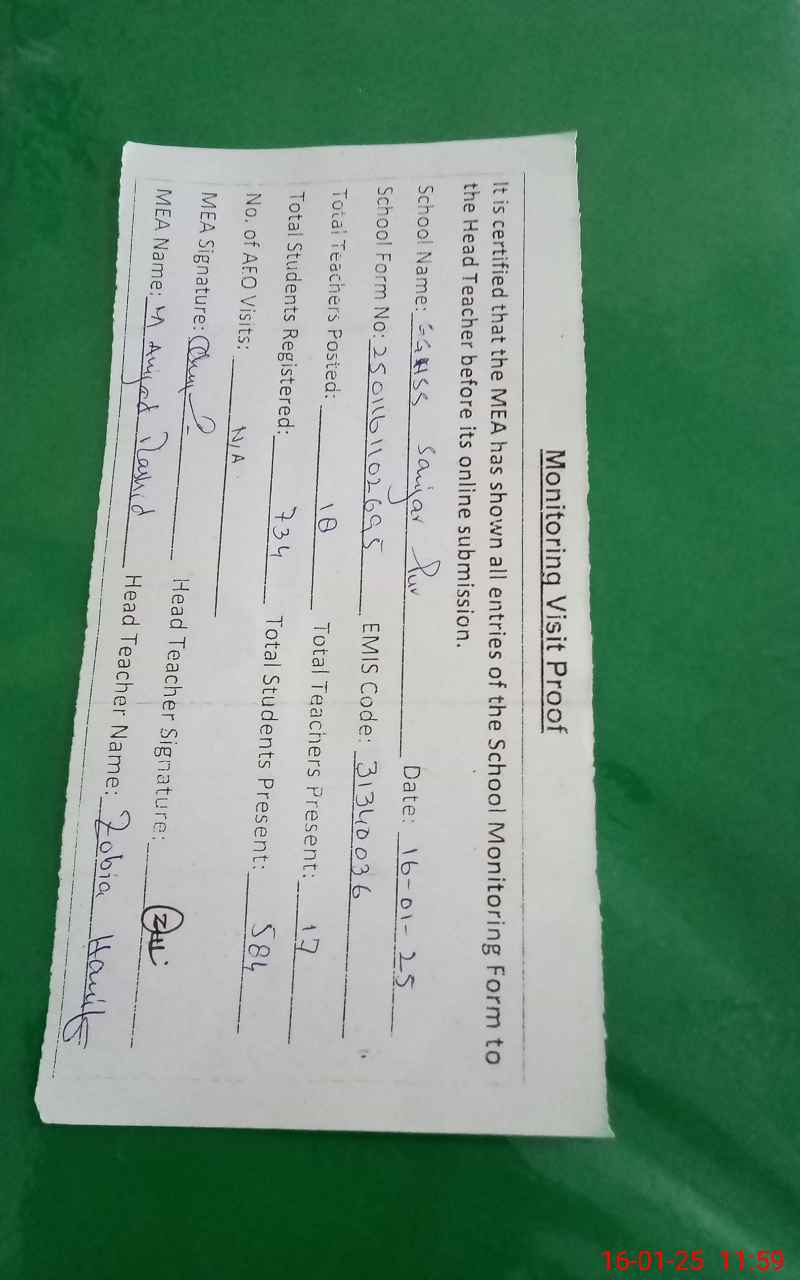 Monitoring Visit Proof
It is certified that the MEA has shown all entries of the School Monitoring Form to
the Head Teacher before its online submission.
School Name: GGHSS Sanjar Pur Date: 16-01-25
School Form No: 2501161102695 EMIS Code: 31340036
Total Teachers Posted: 18 Total Teachers Present: 17
Total Students Registered: 734 Total Students Present: 584
No. of AEO Visits: N/A
MEA Signature: Head Teacher Signature: ZH
MEA Name: M Amjad Rashid Head Teacher Name: Zobia Hanif
16-01-25 11:59